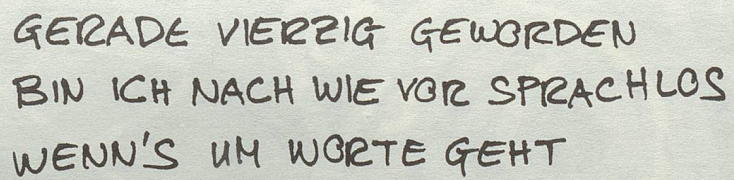 GERADE VIERZIG GEWORDEN
BIN ICH NACH WIE VOR SPRACHLOS
WENN'S UM WORTE GEHT